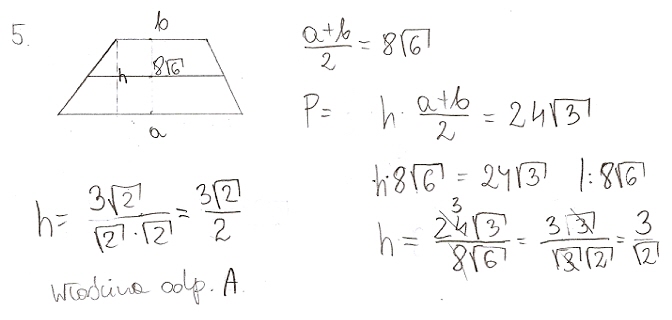 5.
b
h 8√6
a
(a+b)/2 = 8√6
P= h · (a+b)/2 = 24√3
h·8√6 = 24√3 /:8√6
h = 24√3/8√6 = 3√3/√3√2 = 3/√2
3
h= 3√2/√2·√2 = 3√2/2
Właściwa odp. A.